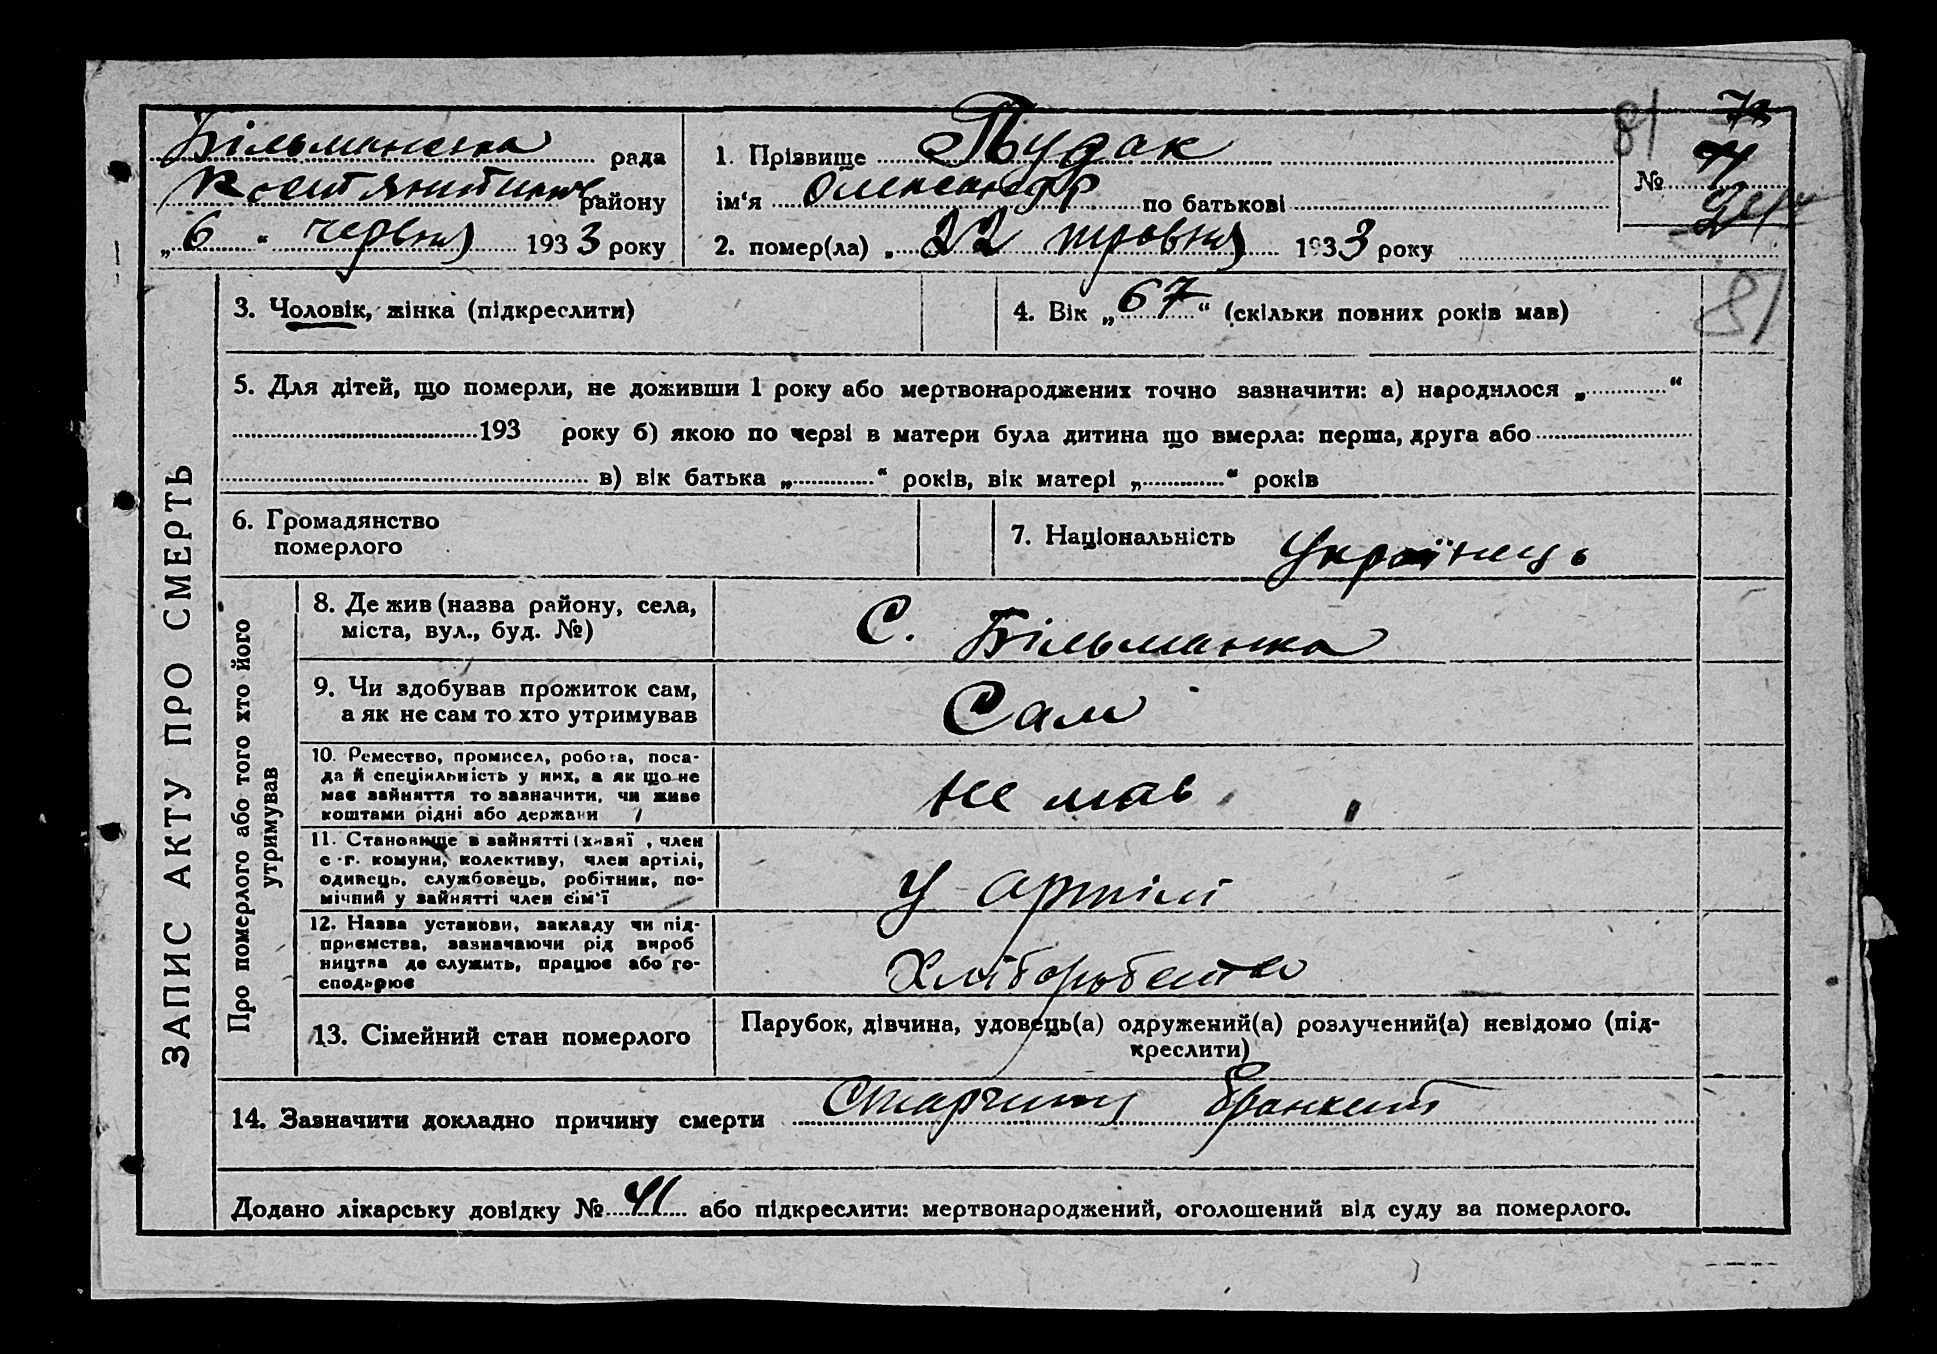 Більманська рада
району
„6“ червня 1933 року
1. Прізвище Пудак
ім'я Олександр по батькові
2. помер(ла) „22 травня 1933 року
81
№
3. Чоловік, жінка (підкреслити)
4. Вік „67“ (скільки повних років мав)
81
5. Для дітей, що померли, не доживши 1 року або мертвонароджених точно зазначити: а) народилося „ “
193 року б) якою по черзі в матери була дитина що вмерла: перша, друга або
в) вік батька „ “ років, вік матері „ “ років
6. Громадянство
померлого
7. Національність Українець
ЗАПИС АКТУ ПРО СМЕРТЬ
Про померлого або того хто його
утримував
8. Де жив (назва району, села,
міста, вул., буд. №)
С. Більманка
9. Чи здобував прожиток сам,
а як не сам то хто утримував
Сам
10. Ремество, промисел, робота, поса-
да й спеціяльність у них, а як що не
має зайняття то зазначити, чи живе
коштами рідні або держави
не мав
11. Становище в зайнятті (хазяї, член
с.-г. комуни, колективу, член артілі,
одинець, службовець, робітник, по-
мічний у зайнятті член сім'ї
У артілі
12. Назва установи, закладу чи під-
приємства, зазначаючи рід вироб
ництва де служить, працює або го-
сподарює
Хліборобства
13. Сімейний стан померлого
Парубок, дівчина, удовець(а) одружений(а) розлучений(а) невідомо (під-
креслити)
14. Зазначити докладно причину смерти
Додано лікарську довідку № 41 або підкреслити: мертвонароджений, оголошений від суду за померлого.